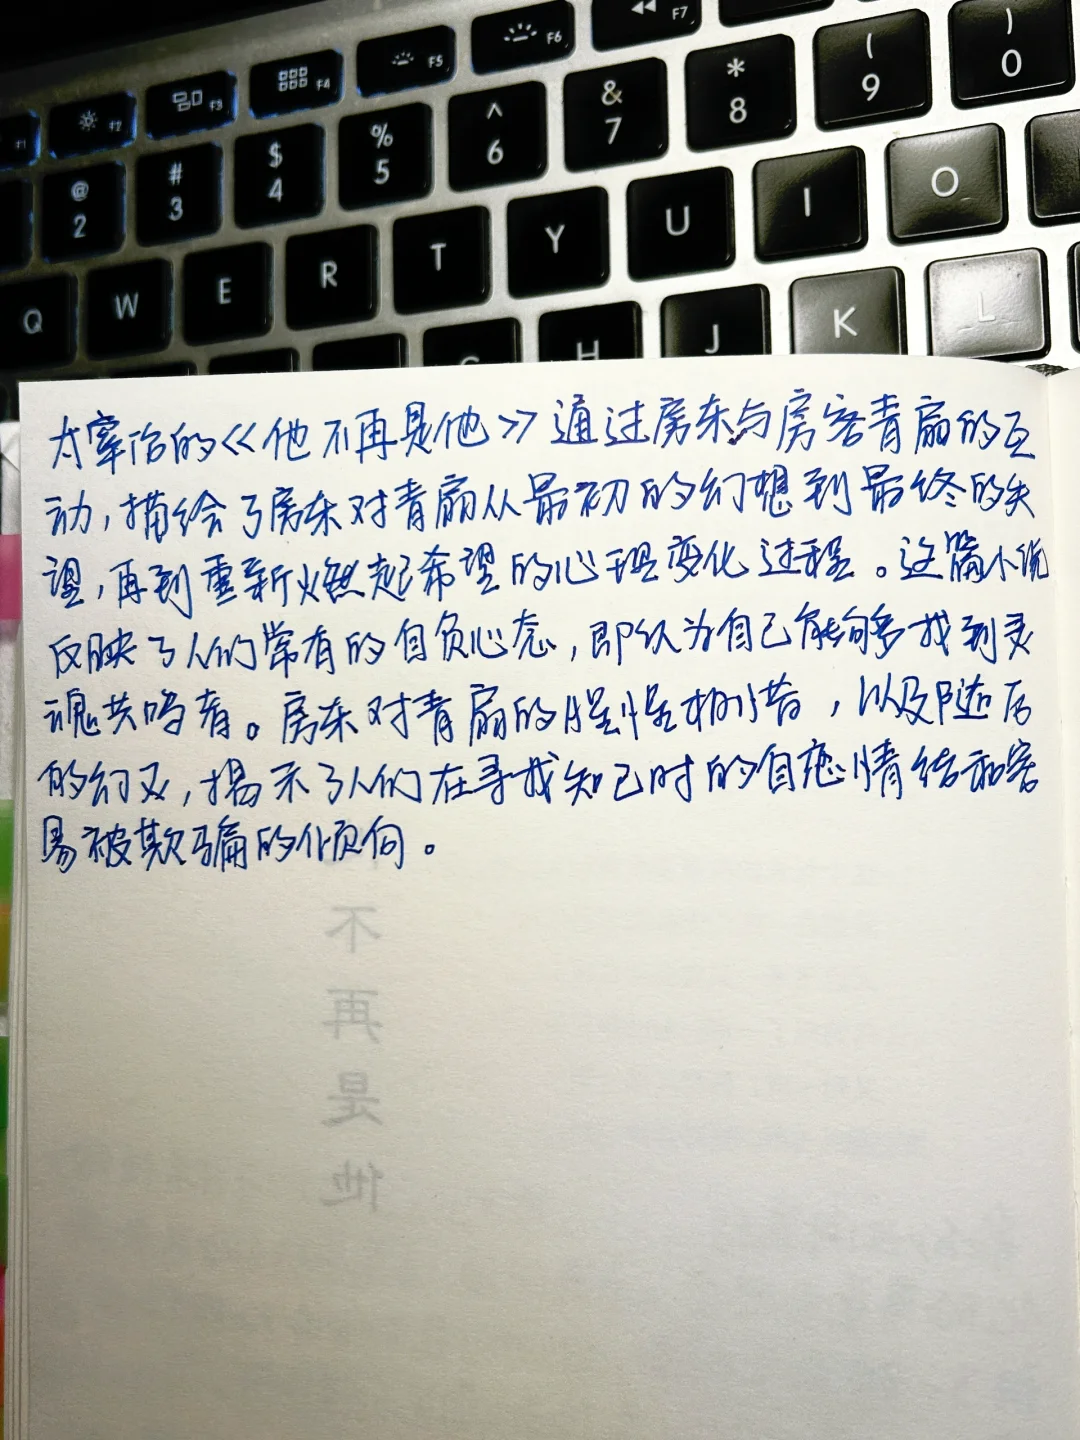 F1 F2 F3 F4 F5 F6 F7
@ 2 # 3 $ 4 % 5 ^ 6 & 7 * 8 ( 9 ) 0
Q W E R T Y U I O
G H J K L
太宰治的《他不再是他》通过房东与房客青扇的互
动,描绘了房东对青扇从最初的幻想到最终的失
望,再到重新燃起希望的心理变化过程。这篇小说
反映了人们常有的自负心态,即认为自己能够找到灵
魂共鸣者。房东对青扇的惺惺相惜,以及随后
的幻灭,揭示了人们在寻找知己时的自恋情结和容
易被欺骗的倾向。
不
再
是
他